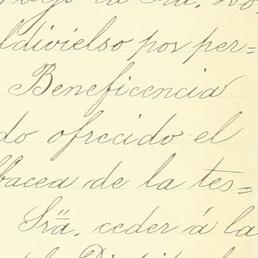 la Sra.
ldivielso por per=
Beneficencia
do ofrecido el
bacea de la tes=
Sr̲a̲. ceder á la